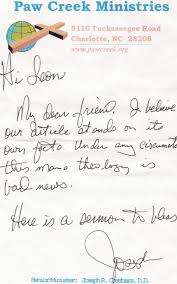 Paw Creek Ministries
5110 Tuckaseegee Road
Charlotte, NC 28208
www.pawcreek.org
Hi Leon
My dear friend. I believe
our article stands on its
own facts. Under any circumst
this mans theology is
bad news.
Here is a sermon to bless
Senior Minister: Joseph R. Chambers, D.D.